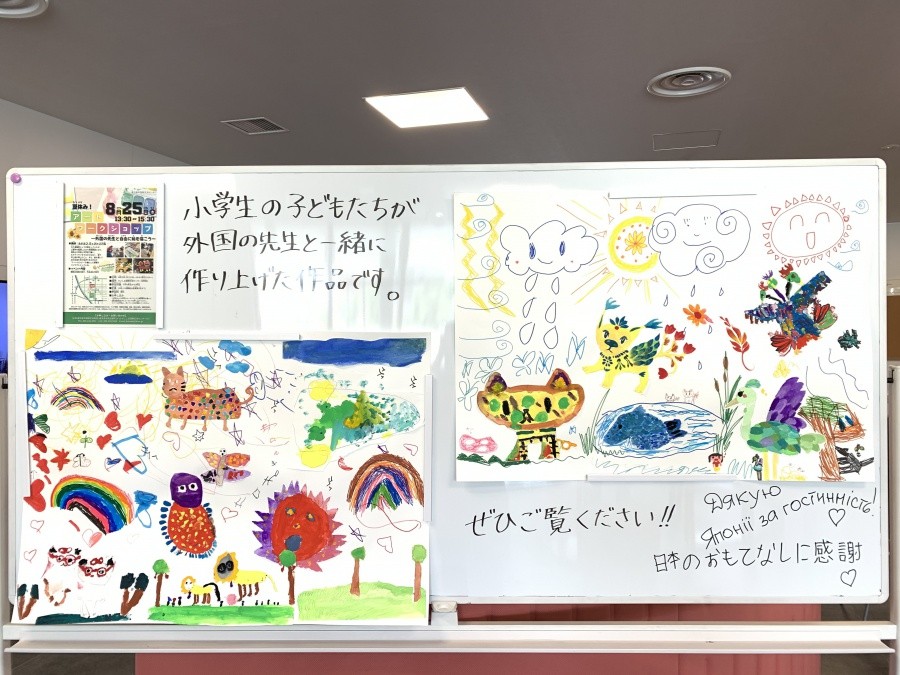 夏休み！
8月25日
13:30～15:30
アート
ワークショップ
小学生の子どもたちが
外国の先生と一緒に
作り上げた作品です。
ぜひご覧ください!!
Дякую
Японії за гостинність!
日本のおもてなしに感謝